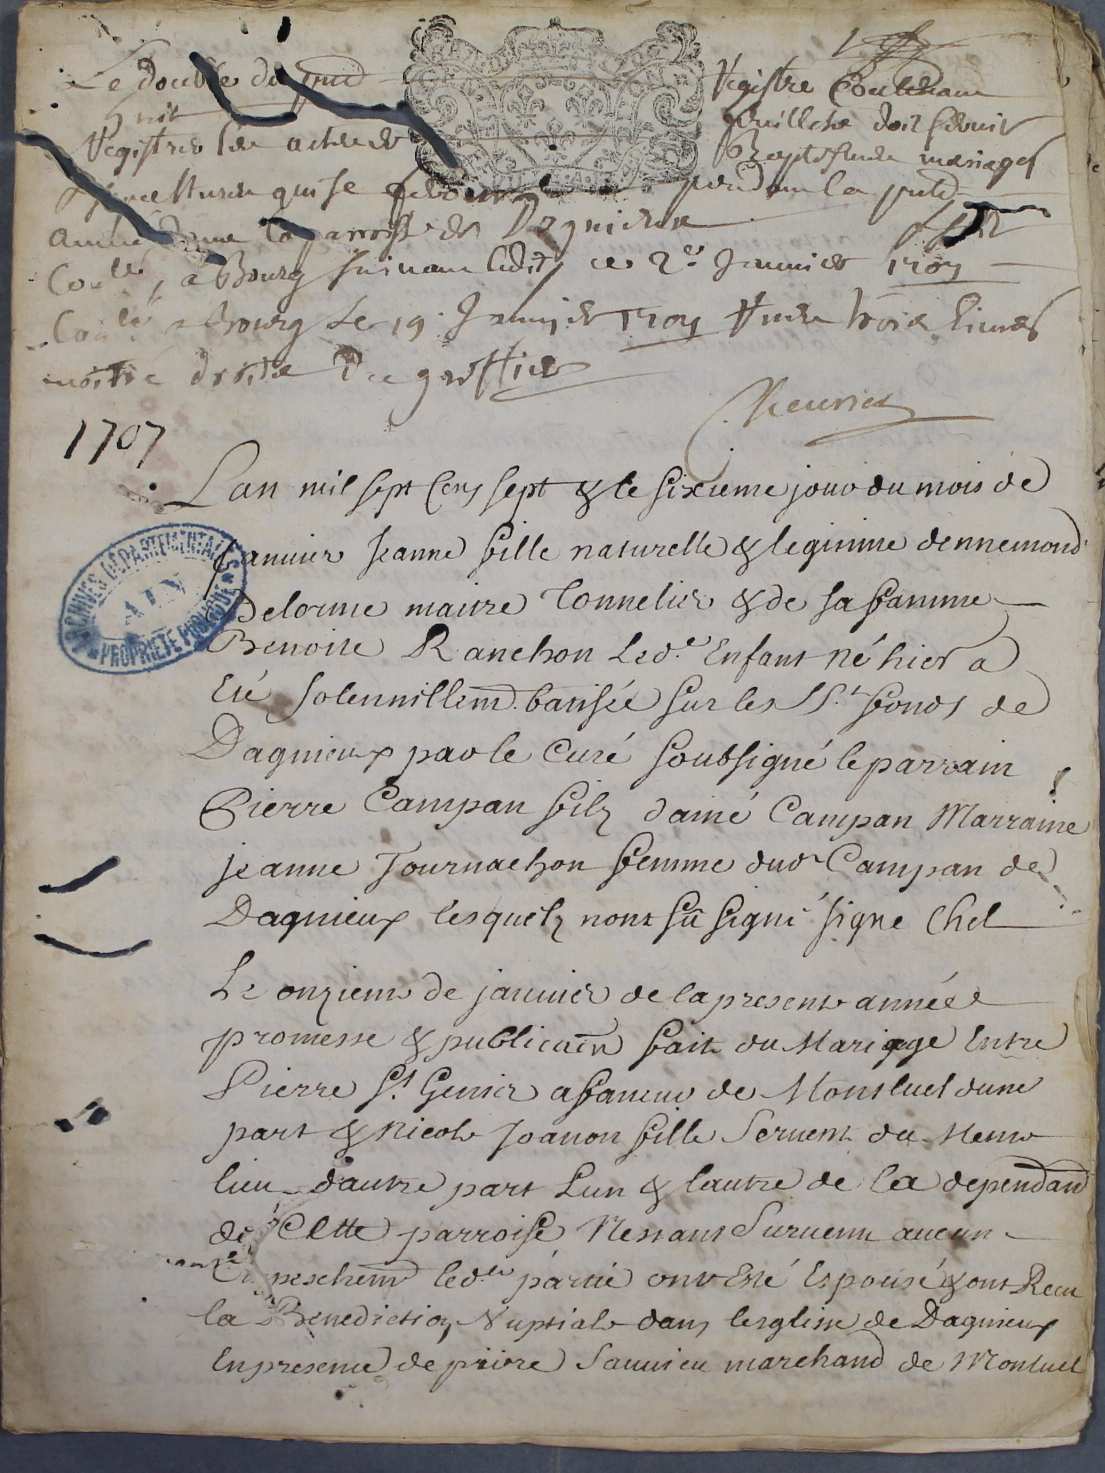 Le double du pnt Registre Contenant
huit feuillets doit servir
Registrer les actes de Baptesmes mariages
Sepultures qui se feront pendant la pnte
année dans la parroisse de Dagnieux
Cotté, à Bourg suivant l'edit, ce 2e Janvier 1707
Con.lé a Bourg Le 19 Janvier 1707 trois livres
moitié droits De greffier
1707
Lan mil sept Cens sept & le sixieme jour du mois de
Januier Jeanne fille naturelle & legitime dennemond
Delorme maitre Tonnelier & de sa famme
Benoite Ranchon Led.e Enfant né hier a
Eté solennillem.t batisée sur les S.ts fonds de
Dagnieux par le Curé soubsigné le parrain
Pierre Campan filz daimé Campan Marraine
jeanne Tournachon femme dud Campan de
Dagnieux lesquelz nont sû signé signe Chol
ARCHIVES DÉPARTEMENTALES
AIN
PROPRIÉTÉ PUBLIQUE
Le onzieme de januier de la presente année
promesse & publicaon fait du Mariage Entre
Pierre S.t Genier afaneur de Monluel dune
part & Nicole Joanon fille Seruent du Mesme
lieu dautre part Lun & lautre de la dependand
de Cette parroise Nestant Suruenu aucun
Empeschemt led.tes partié ont Esté Espousé & ont Recu
la Benediction Nuptiale dans lesglise de Dagnieux
En presence de pierre Sauuieu marchand de Monluel